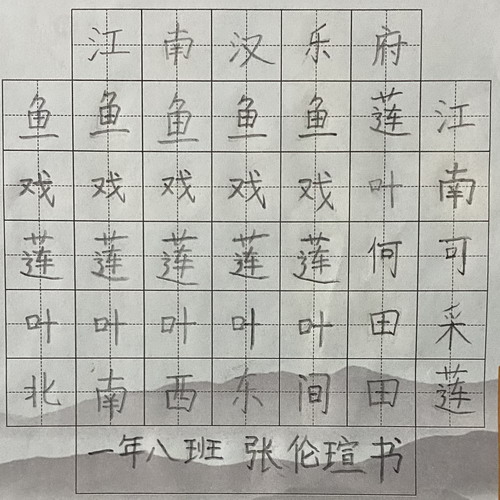 江南汉乐府
江南可采莲
莲叶何田田
鱼戏莲叶间
鱼戏莲叶东
鱼戏莲叶西
鱼戏莲叶南
鱼戏莲叶北
一年八班 张伦瑄书